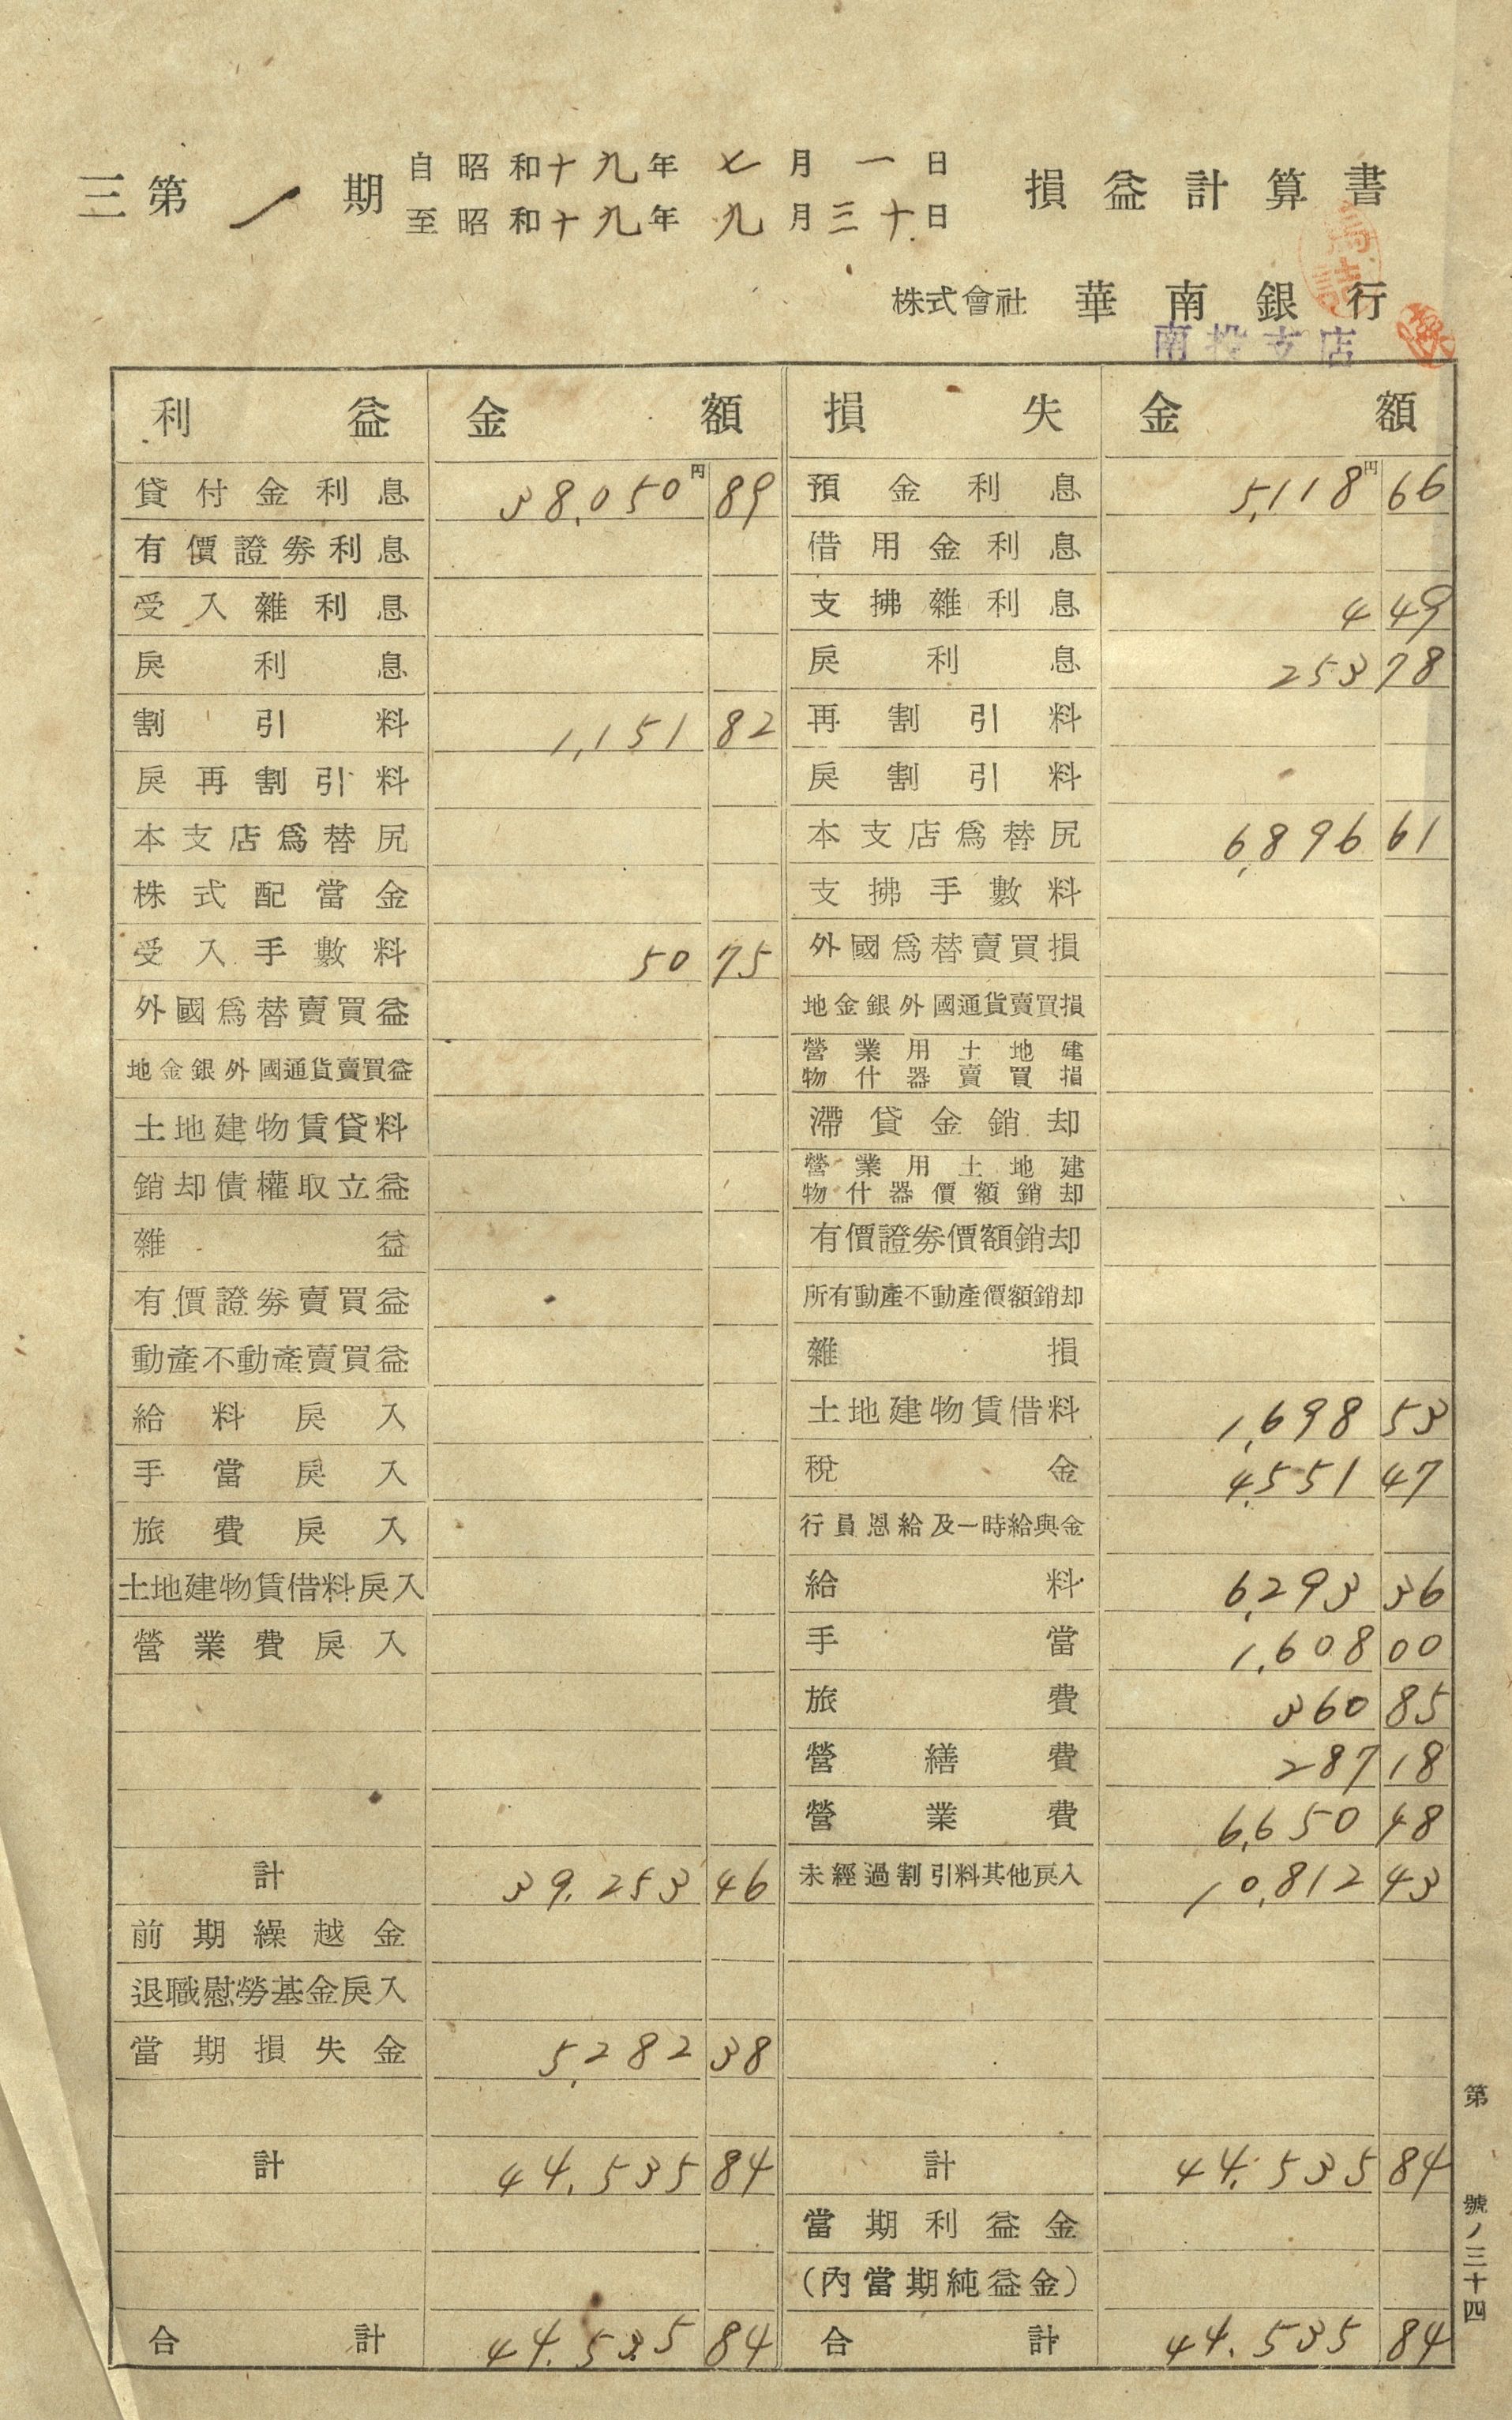 三第 一 期 自昭和十九年 七月 一日 損益計算書
至昭和十九年 九月三十日
株式會社 華南銀行
南投支店
利益 金額 損失 金額
貸付金利息 38,050円89 預金利息 5,118円66
有價證券利息 借用金利息
受入雜利息 支拂雜利息 4 49
戾利息 戾利息 253 78
割引料 1,151 82 再割引料
戾再割引料 戾割引料
本支店爲替尻 本支店爲替尻 6,896 61
株式配當金 支拂手數料
受入手數料 50 75 外國爲替賣買損
外國爲替賣買益 地金銀外國通貨賣買損
地金銀外國通貨賣買益 營業用土地建
物什器賣買損
土地建物賃貸料 滯貸金銷却
銷却債權取立益 營業用土地建
物什器價額銷却
雜益 有價證券價額銷却
有價證券賣買益 所有動產不動產價額銷却
動產不動產賣買益 雜損
給料戾入 土地建物賃借料 1,698 53
手當戾入 稅金 4,551 47
旅費戾入 行員恩給及一時給與金
土地建物賃借料戾入 給料 6,293 36
營業費戾入 手當 1,608 00
旅費 360 85
營繕費 287 18
營業費 6,650 48
計 39,253 46 未經過割引料其他戾入 10,812 43
前期繰越金
退職慰勞基金戾入
當期損失金 5,282 38
計 44,535 84 計 44,535 84
當期利益金
(內當期純益金)
合計 44,535 84 合計 44,535 84
第 號ノ三十四